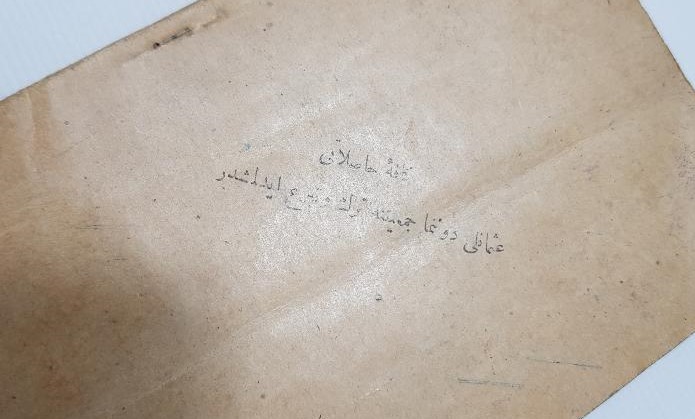 كافهٔ حاصلاتی
عثمانلی دوننما جمعیتنه ترك و تبرع ایدلمشدر